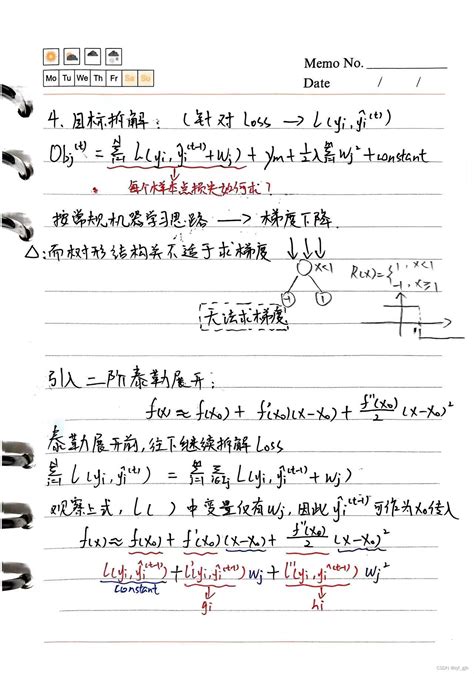 Memo No.
Mo Tu We Th Fr Sa So
Date / /
4. 目标拆解：（针对Loss → L(yi, ŷi^(t))
Obj^(t) = Σ_{i=1}^{n} L(yi, ŷi^(t-1)+wj) + γm + ½λ Σ_{j=1}^{m} wj² + constant
每个样本点损失如何求？
按常规机器学习思路 → 梯度下降.
△:而树形结构关不适于求梯度
x<1
-1 1
R(x)={1, x<1
-1, x≥1
无法求梯度
引入二阶泰勒展开：
f(x) ≈ f(x0) + f'(x0)(x-x0) + f''(x0)/2 (x-x0)²
泰勒展开前, 往下继续拆解Loss
Σ_{i=1}^{n} L(yi, ŷi^(t)) = Σ_{j=1}^{m} Σ_{i∈Ij} L(yi, ŷi^(t-1)+wj)
观察上式, L( ) 中变量仅有wj, 因此ŷi^(t-1)可作为x0传入
f(x)≈ f(x0) + f'(x0)(x-x0) + f''(x0)/2 (x-x0)²
L(yi, ŷi^(t-1)) + L'(yi, ŷi^(t-1)) wj + L''(yi, ŷi^(t-1)) wj²
constant gi hi